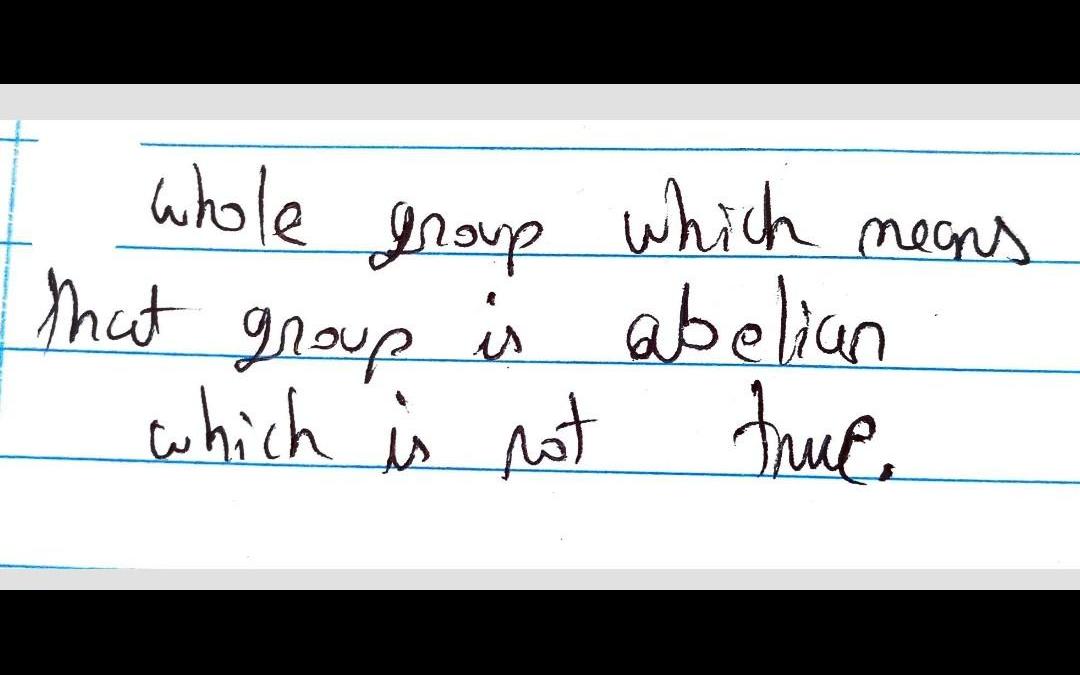 whole group which means
that group is abelian
which is not true.